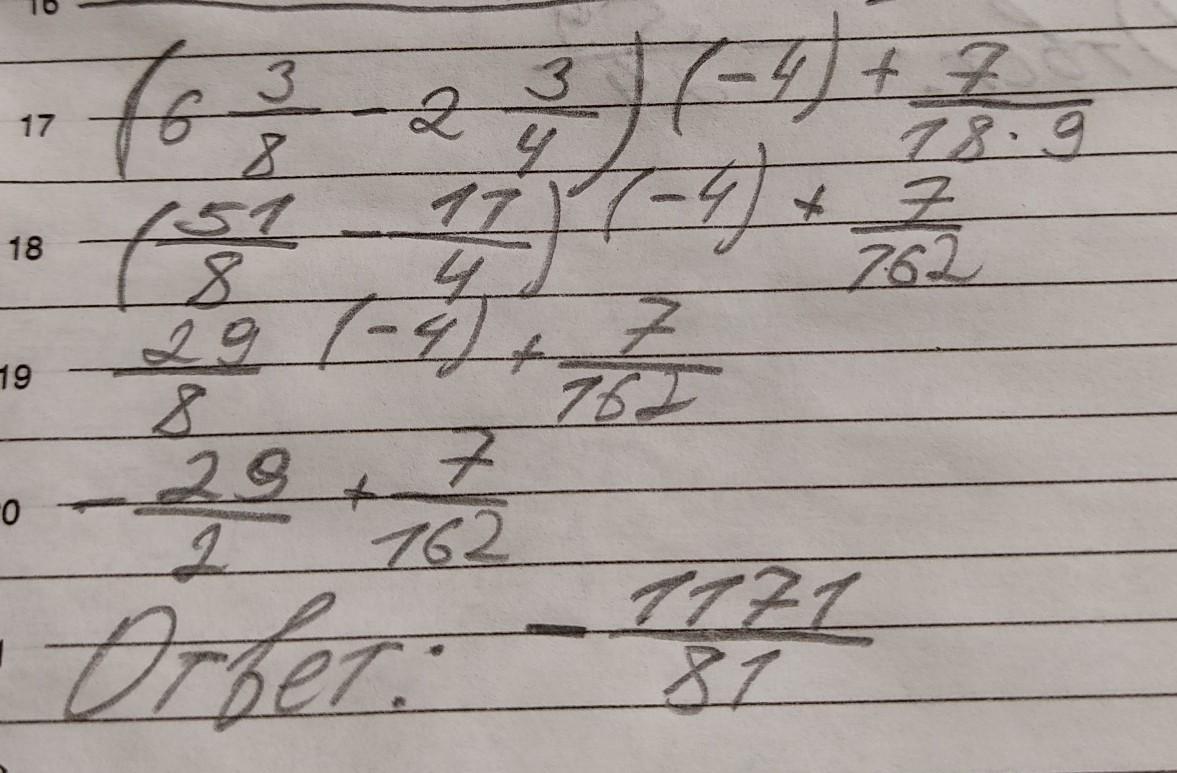 16
17 (6 3/8 - 2 3/4) (-4) + 7/18·9
18 (51/8 - 11/4) (-4) + 7/162
19 29/8 (-4) + 7/162
0 - 29/2 + 7/162
Ответ: - 1171/81